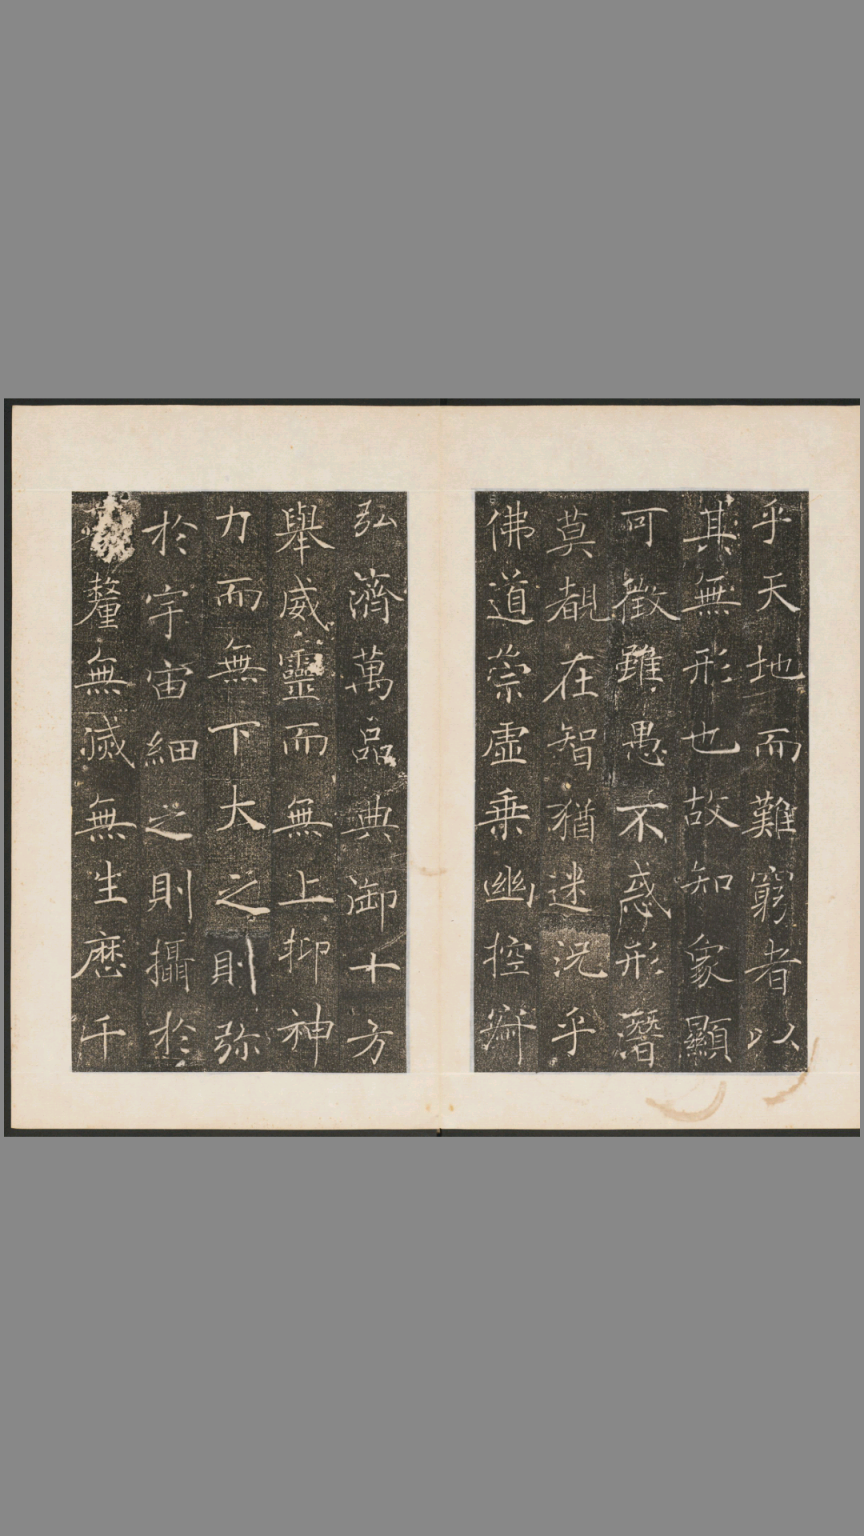 乎天地而難窮者以
其無形也故知象顯
可徵雖愚不惑形潛
莫覩在智猶迷況乎
佛道崇虛乗幽控寂
弘濟萬品典御十方
舉威靈而無上抑神
力而無下大之則弥
於宇宙細之則攝於
釐無滅無生歷千